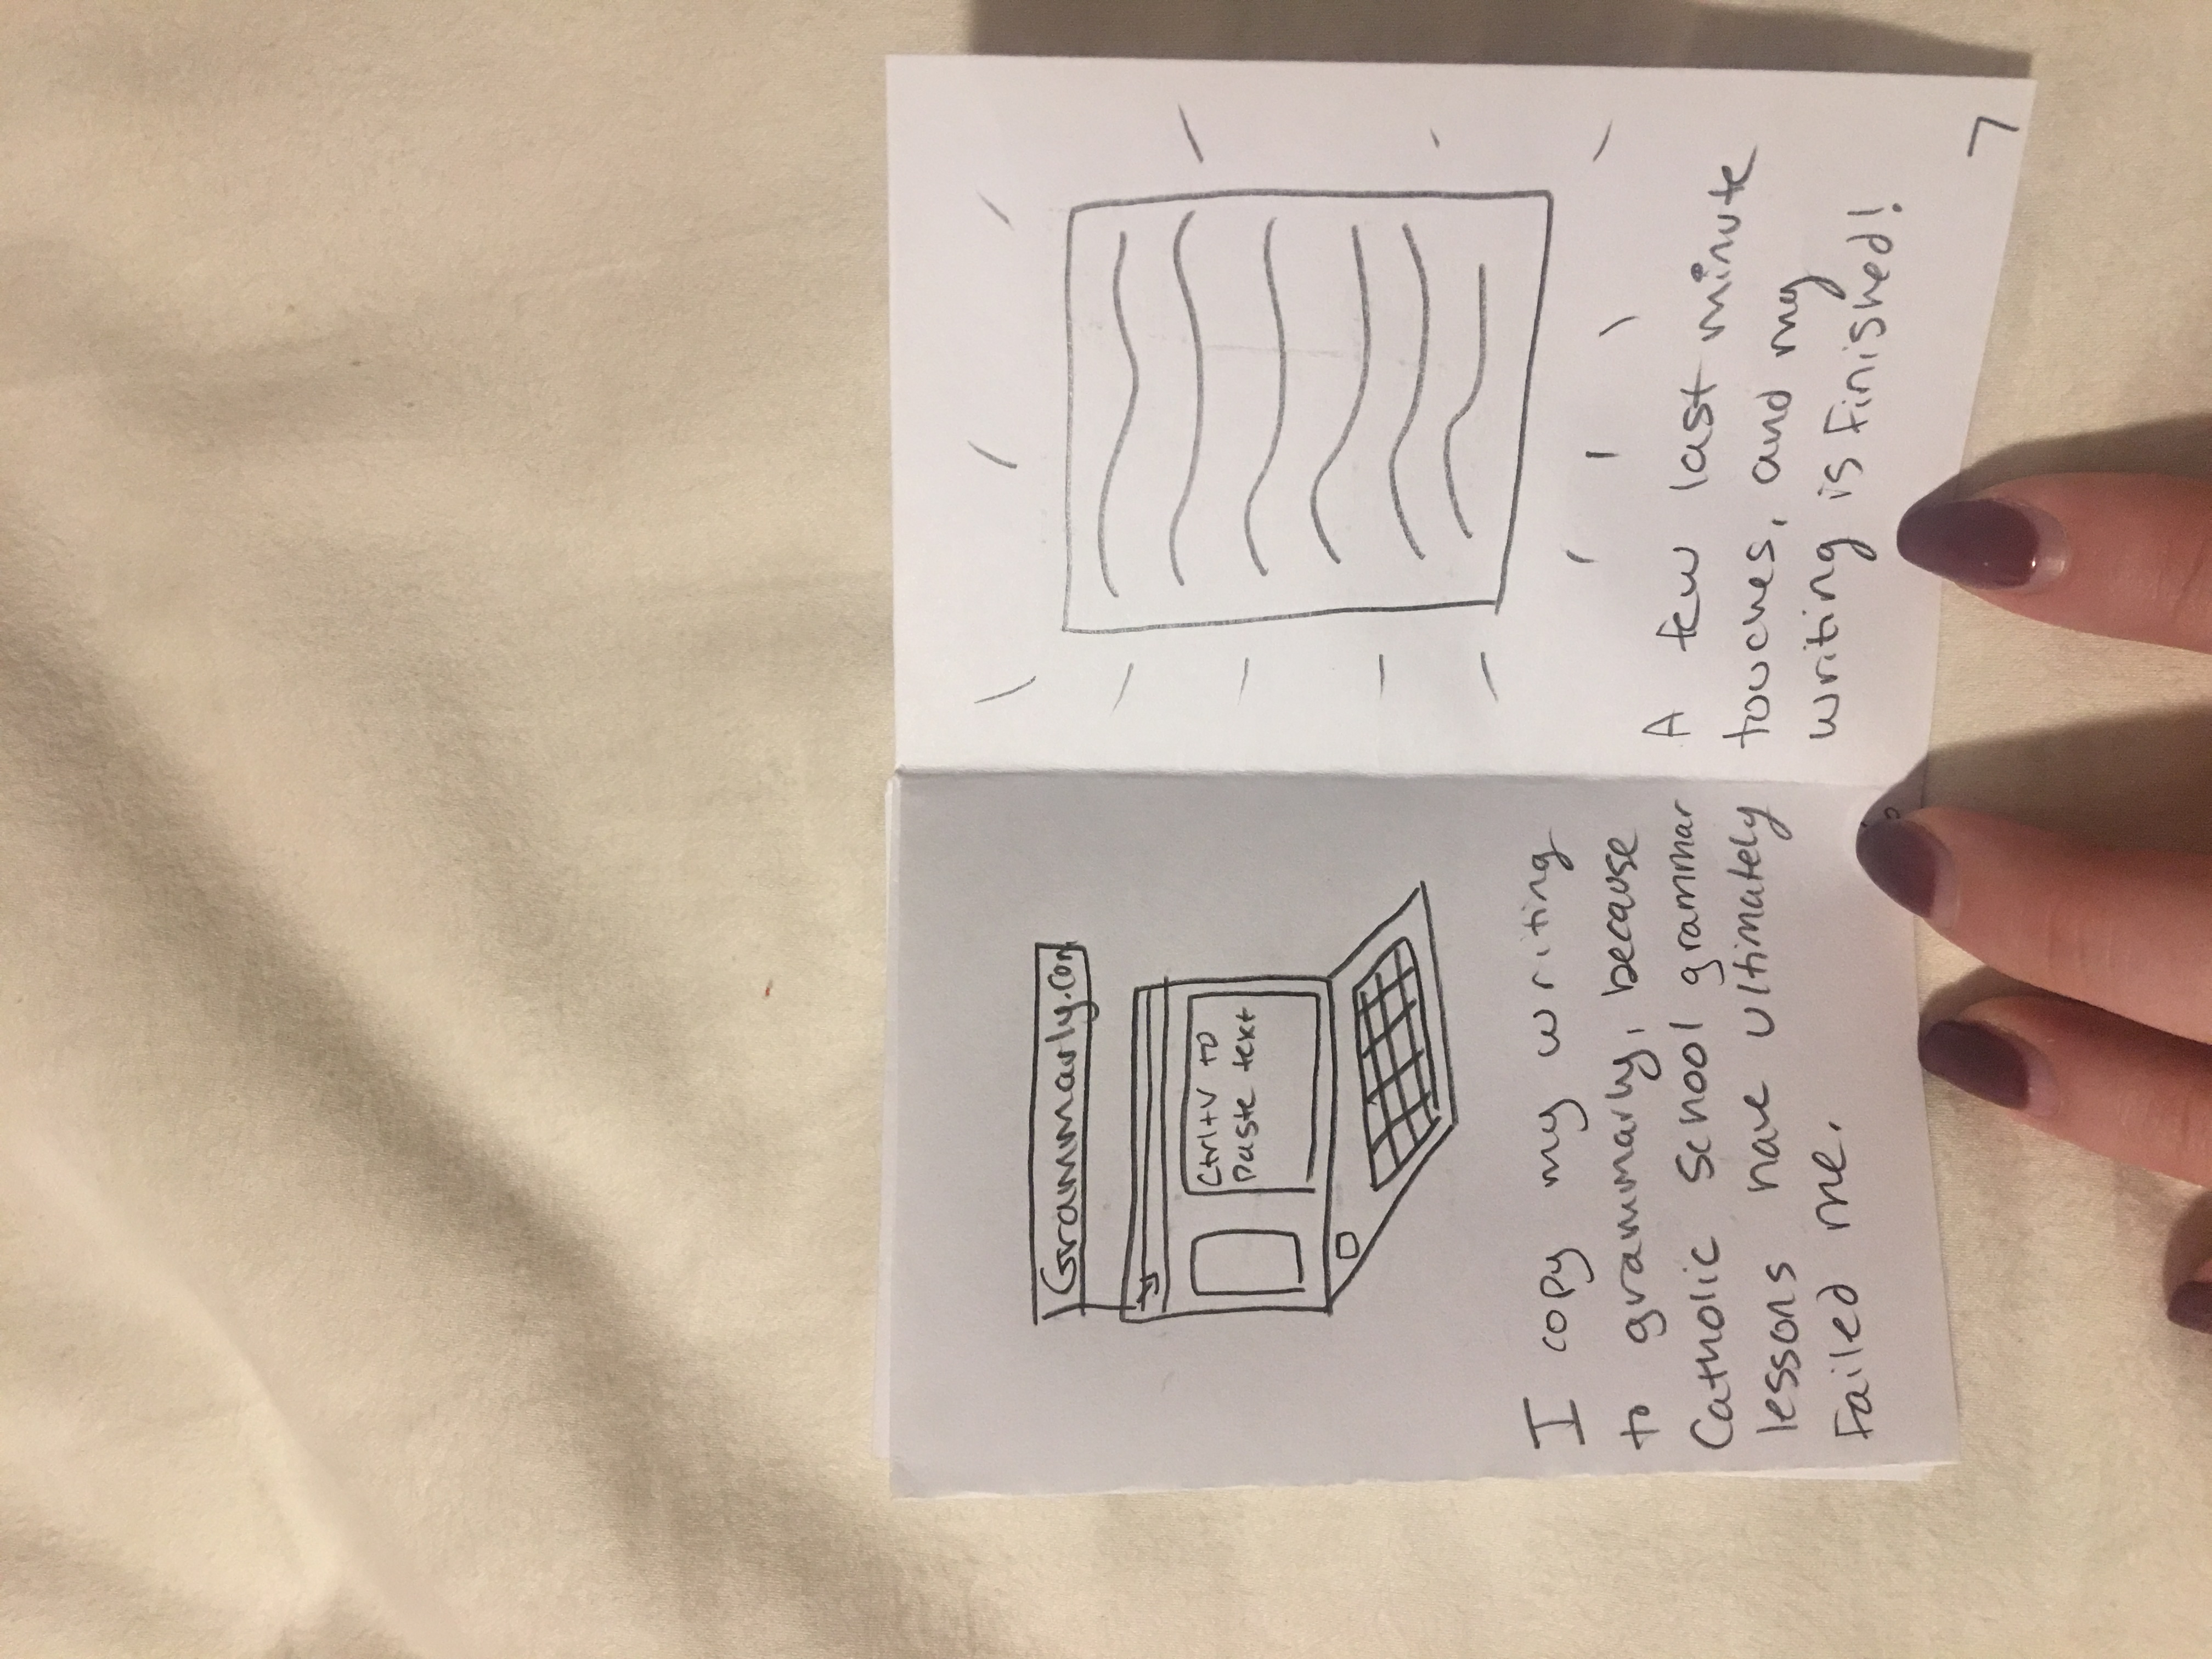 Grammarly.com
Ctrl+V to
paste text
I copy my writing
to grammarly, because
Catholic school grammar
lessons have ultimately
failed me.
A few last minute
touches, and my
writing is finished!
7